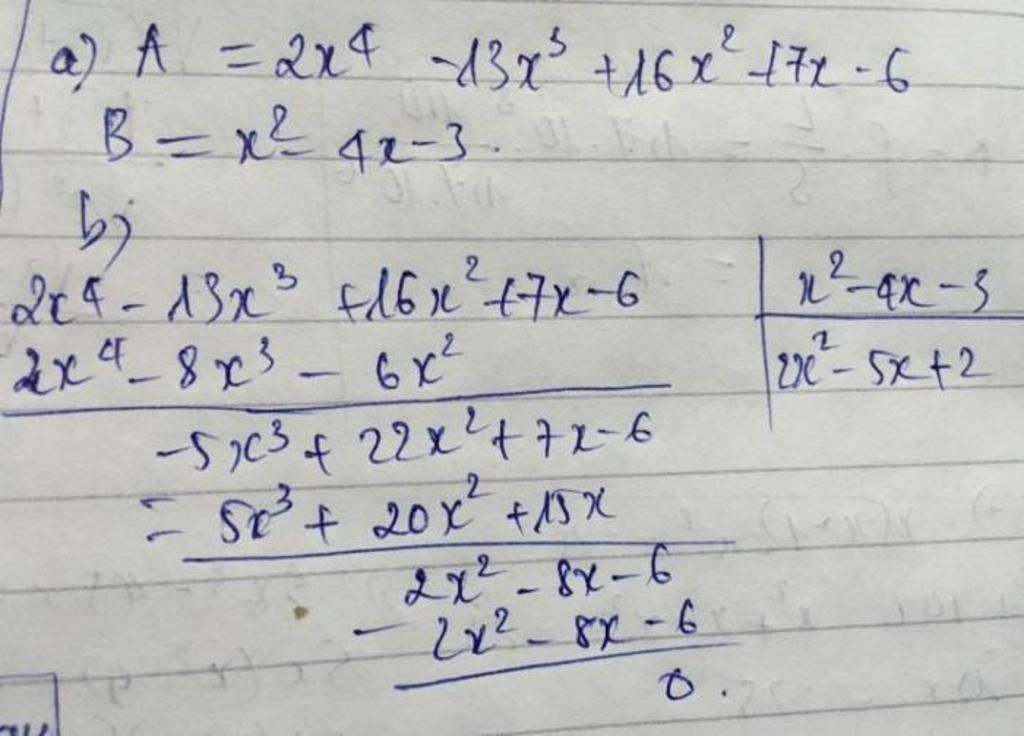 a) A = 2x⁴ - 13x³ + 16x² + 7x - 6
B = x² - 4x - 3.
b)
2x⁴ - 13x³ + 16x² + 7x - 6 | x² - 4x - 3
2x⁴ - 8x³ - 6x² | 2x² - 5x + 2
-5x³ + 22x² + 7x - 6
= 5x³ + 20x² + 15x
2x² - 8x - 6
- 2x² - 8x - 6
0.